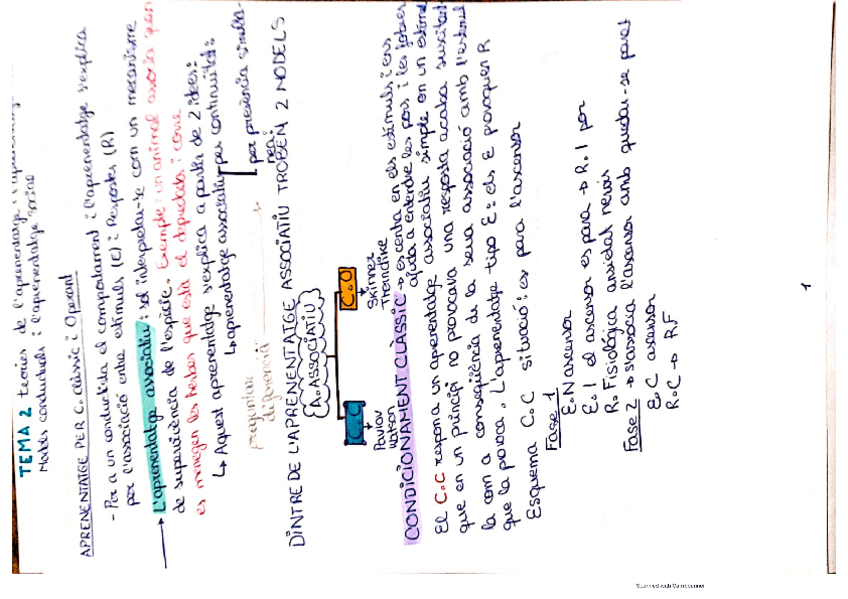 TEMA 2 teories de l'aprenentatge i l'aprenentatge
Models conductuals i l'aprenentatge social
APRENENTATGE PER C. Clàssic i Operant
- Per a un conductista el comportament i l'aprenentatge s'explica
per l'associació entre estímuls (E) i Respostes (R)
→ L'aprenentatge associatiu: sol interpretar-se com un mecanisme
de supervivència de l'espècie. Exemple: un animal associa quan
es mengen les herbes que està el depredador i corre
↳ Aquest aprenentatge s'explica a partir de 2 idees:
↳ aprenentatge associatiu per continuïtat:
per presència simultà-
nea:
preguntar
diferència
DINTRE DE L'APRENENTATGE ASSOCIATIU TROBEM 2 MODELS
A. ASSOCIATIU
C.C C.O
Pavlov
Watson
Skinner
Thorndike
CONDICIONAMENT CLÀSSIC → es centra en els estímuls i ens
ajuda a entendre les pors i les fòbies
El C.C respon a un aprenentatge associatiu simple on un estímul
que en un principi no provocava una resposta acaba suscitant-
la com a conseqüència de la seva associació amb l'estímul
que la provoca. L'aprenentatge tipo E: els E provoquen R
Esquema C.C situació: es para l'ascensor
Fase 1
E.N ascensor
E. I el ascensor es para → R. I por
R. Fisiològica ansietat nervis
Fase 2 → s'associa l'ascensor amb quedar-se parat
E. C ascensor
R. C → RF
1
Scanned with CamScanner